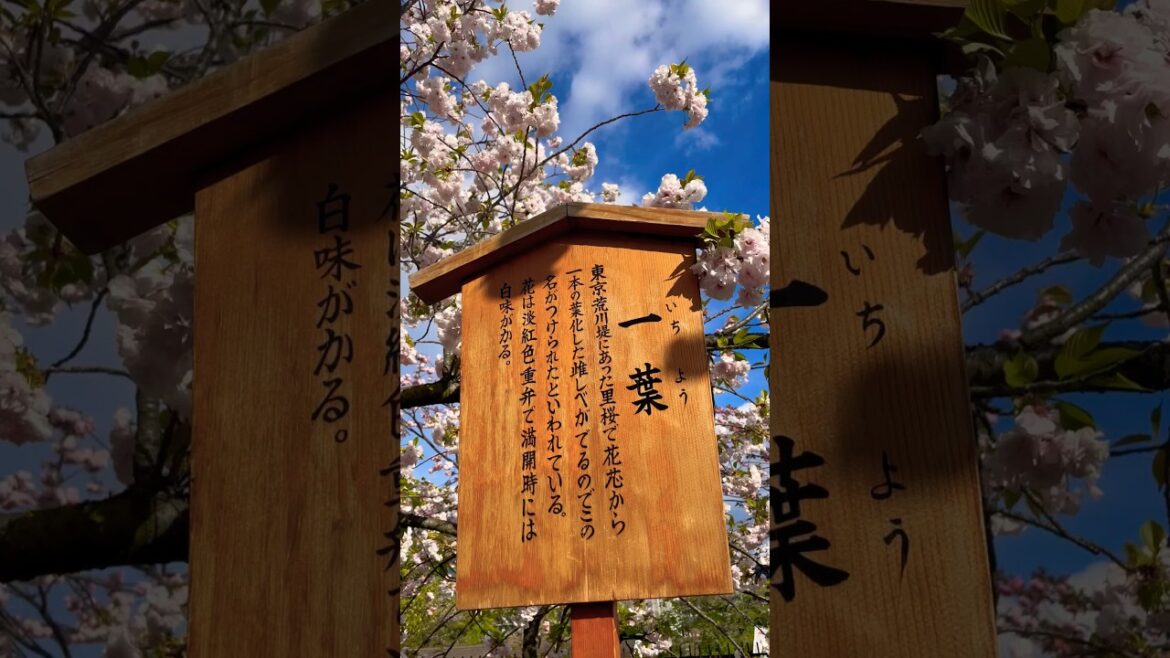 一葉
いちよう
東京荒川堤にあった里桜で花芯から
一本の葉化した雌しべがでるのでこの
名がつけられたといわれている。
花は淡紅色重弁で満開時には
白味がかる。